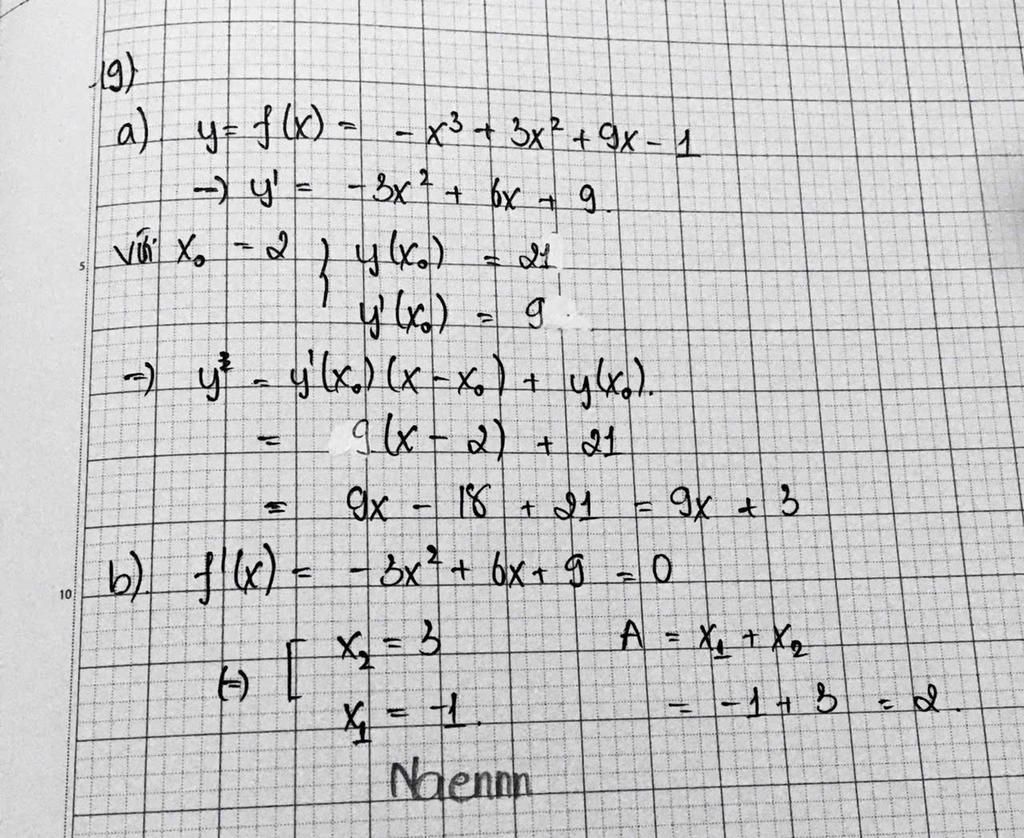 19)
a) y = f(x) = -x³ + 3x² + 9x - 1
→ y' = -3x² + 6x + 9.
với x₀ = 2 } y(x₀) = 21
y'(x₀) = 9
⇒ y = y'(x₀)(x - x₀) + y(x₀).
= 9(x - 2) + 21
= 9x - 18 + 21 = 9x + 3
5
b). f'(x) = -3x² + 6x + 9 = 0
10
(=) [ x₂ = 3 A = x₁ + x₂
x₁ = -1. = -1 + 3 = 2.
Naennn